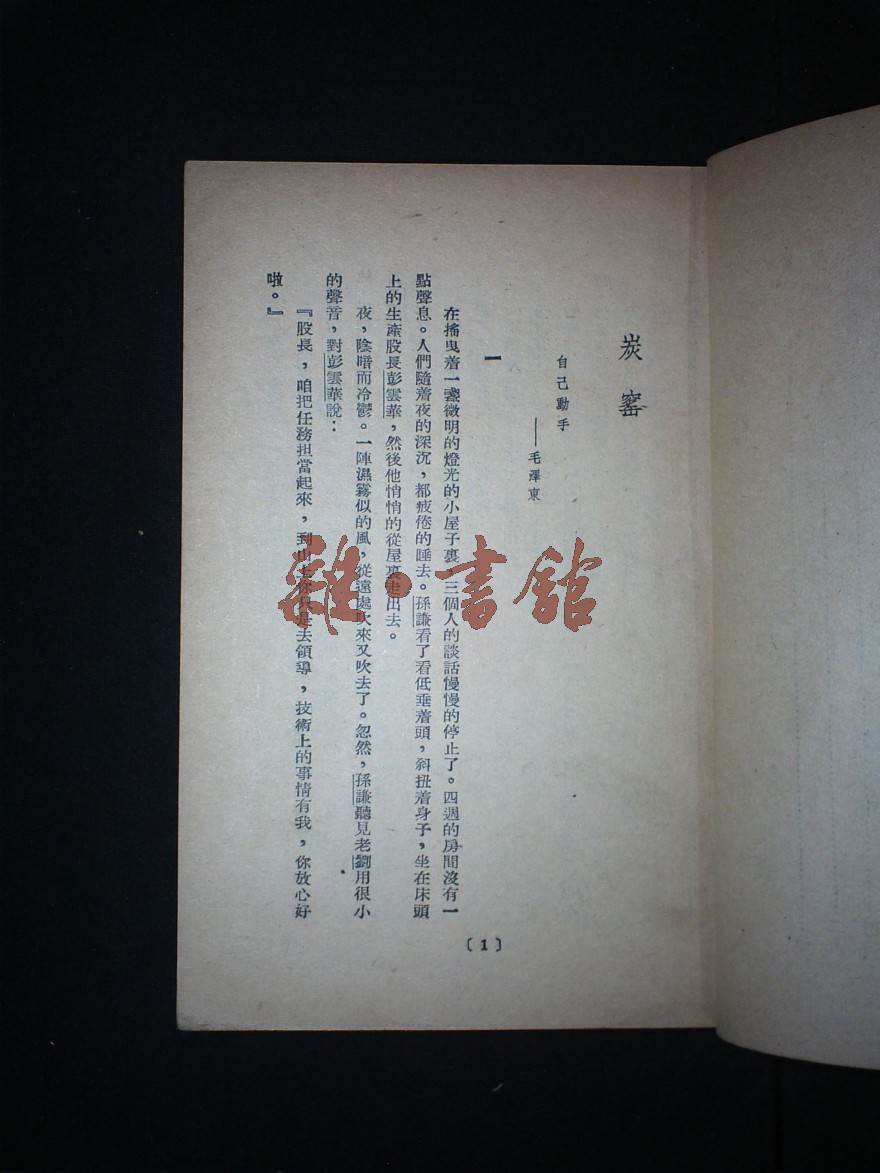 炭窰
自己動手
——毛澤東
一
在搖曳着一盞微明的燈光的小屋子裏，三個人的談話慢慢的停止了。四週的房間沒有一
點聲息。人們隨着夜的深沉，都疲倦的睡去。孫謙看了看低垂着頭，斜扭着身子，坐在床頭
上的生產股長彭雲華，然後他悄悄的從屋裏走出去。
夜，陰暗而冷鬱。一陣濕霧似的風，從遠處吹來又吹去了。忽然，孫謙聽見老劉用很小
的聲音，對彭雲華說：
『股長，咱把任務担當起來，到山上你只是去領導，技術上的事情有我，你放心好
啦。』
〔1〕
雜·書館